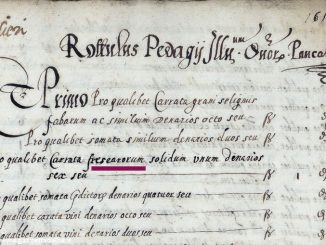 Rottulus Pedagij Illu.um
Primo Pro qualibet Carrata grani seliginis
fabarum ac similum denarios octo seu
Pro qualibet somata similum denarios duos seu
Pro qualibet Carrata solidum unum denarios
sex seu
qualibet somata denarios quatuor seu
qualibet carata vini denarios octo seu
qualibet somata vini denarios duos seu